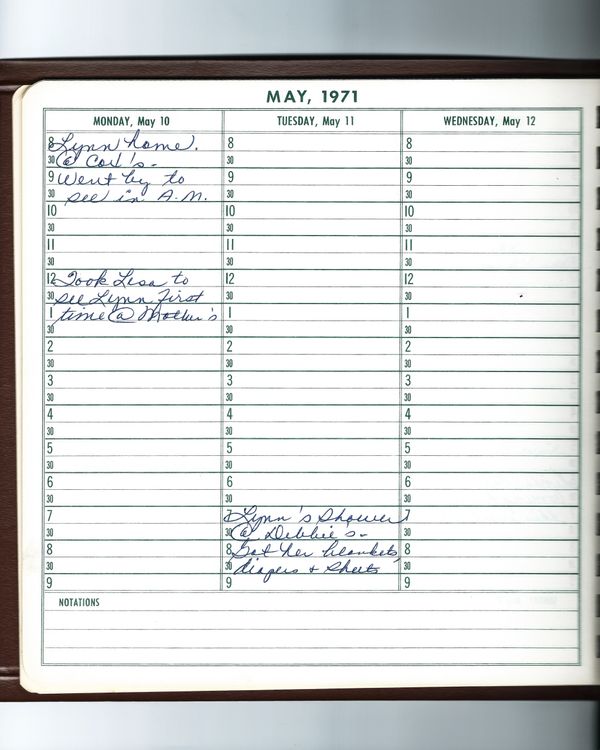 MAY, 1971
MONDAY, May 10
TUESDAY, May 11
WEDNESDAY, May 12
8 Lynn home.
30 @ Cox's -
9 Went by to
30 see in A.M.
10
30
11
30
12 Took Lesa to
30 see Lynn first
1 time @ Mother's
30
2
30
3
30
4
30
5
30
6
30
7
30
8
30
9
8
30
9
30
10
30
11
30
12
30
1
30
2
30
3
30
4
30
5
30
6
30
7 Lynn's Shower
30 @ Debbie's -
8 Got her blankets,
30 diapers + sheets
9
8
30
9
30
10
30
11
30
12
30
1
30
2
30
3
30
4
30
5
30
6
30
7
30
8
30
9
NOTATIONS